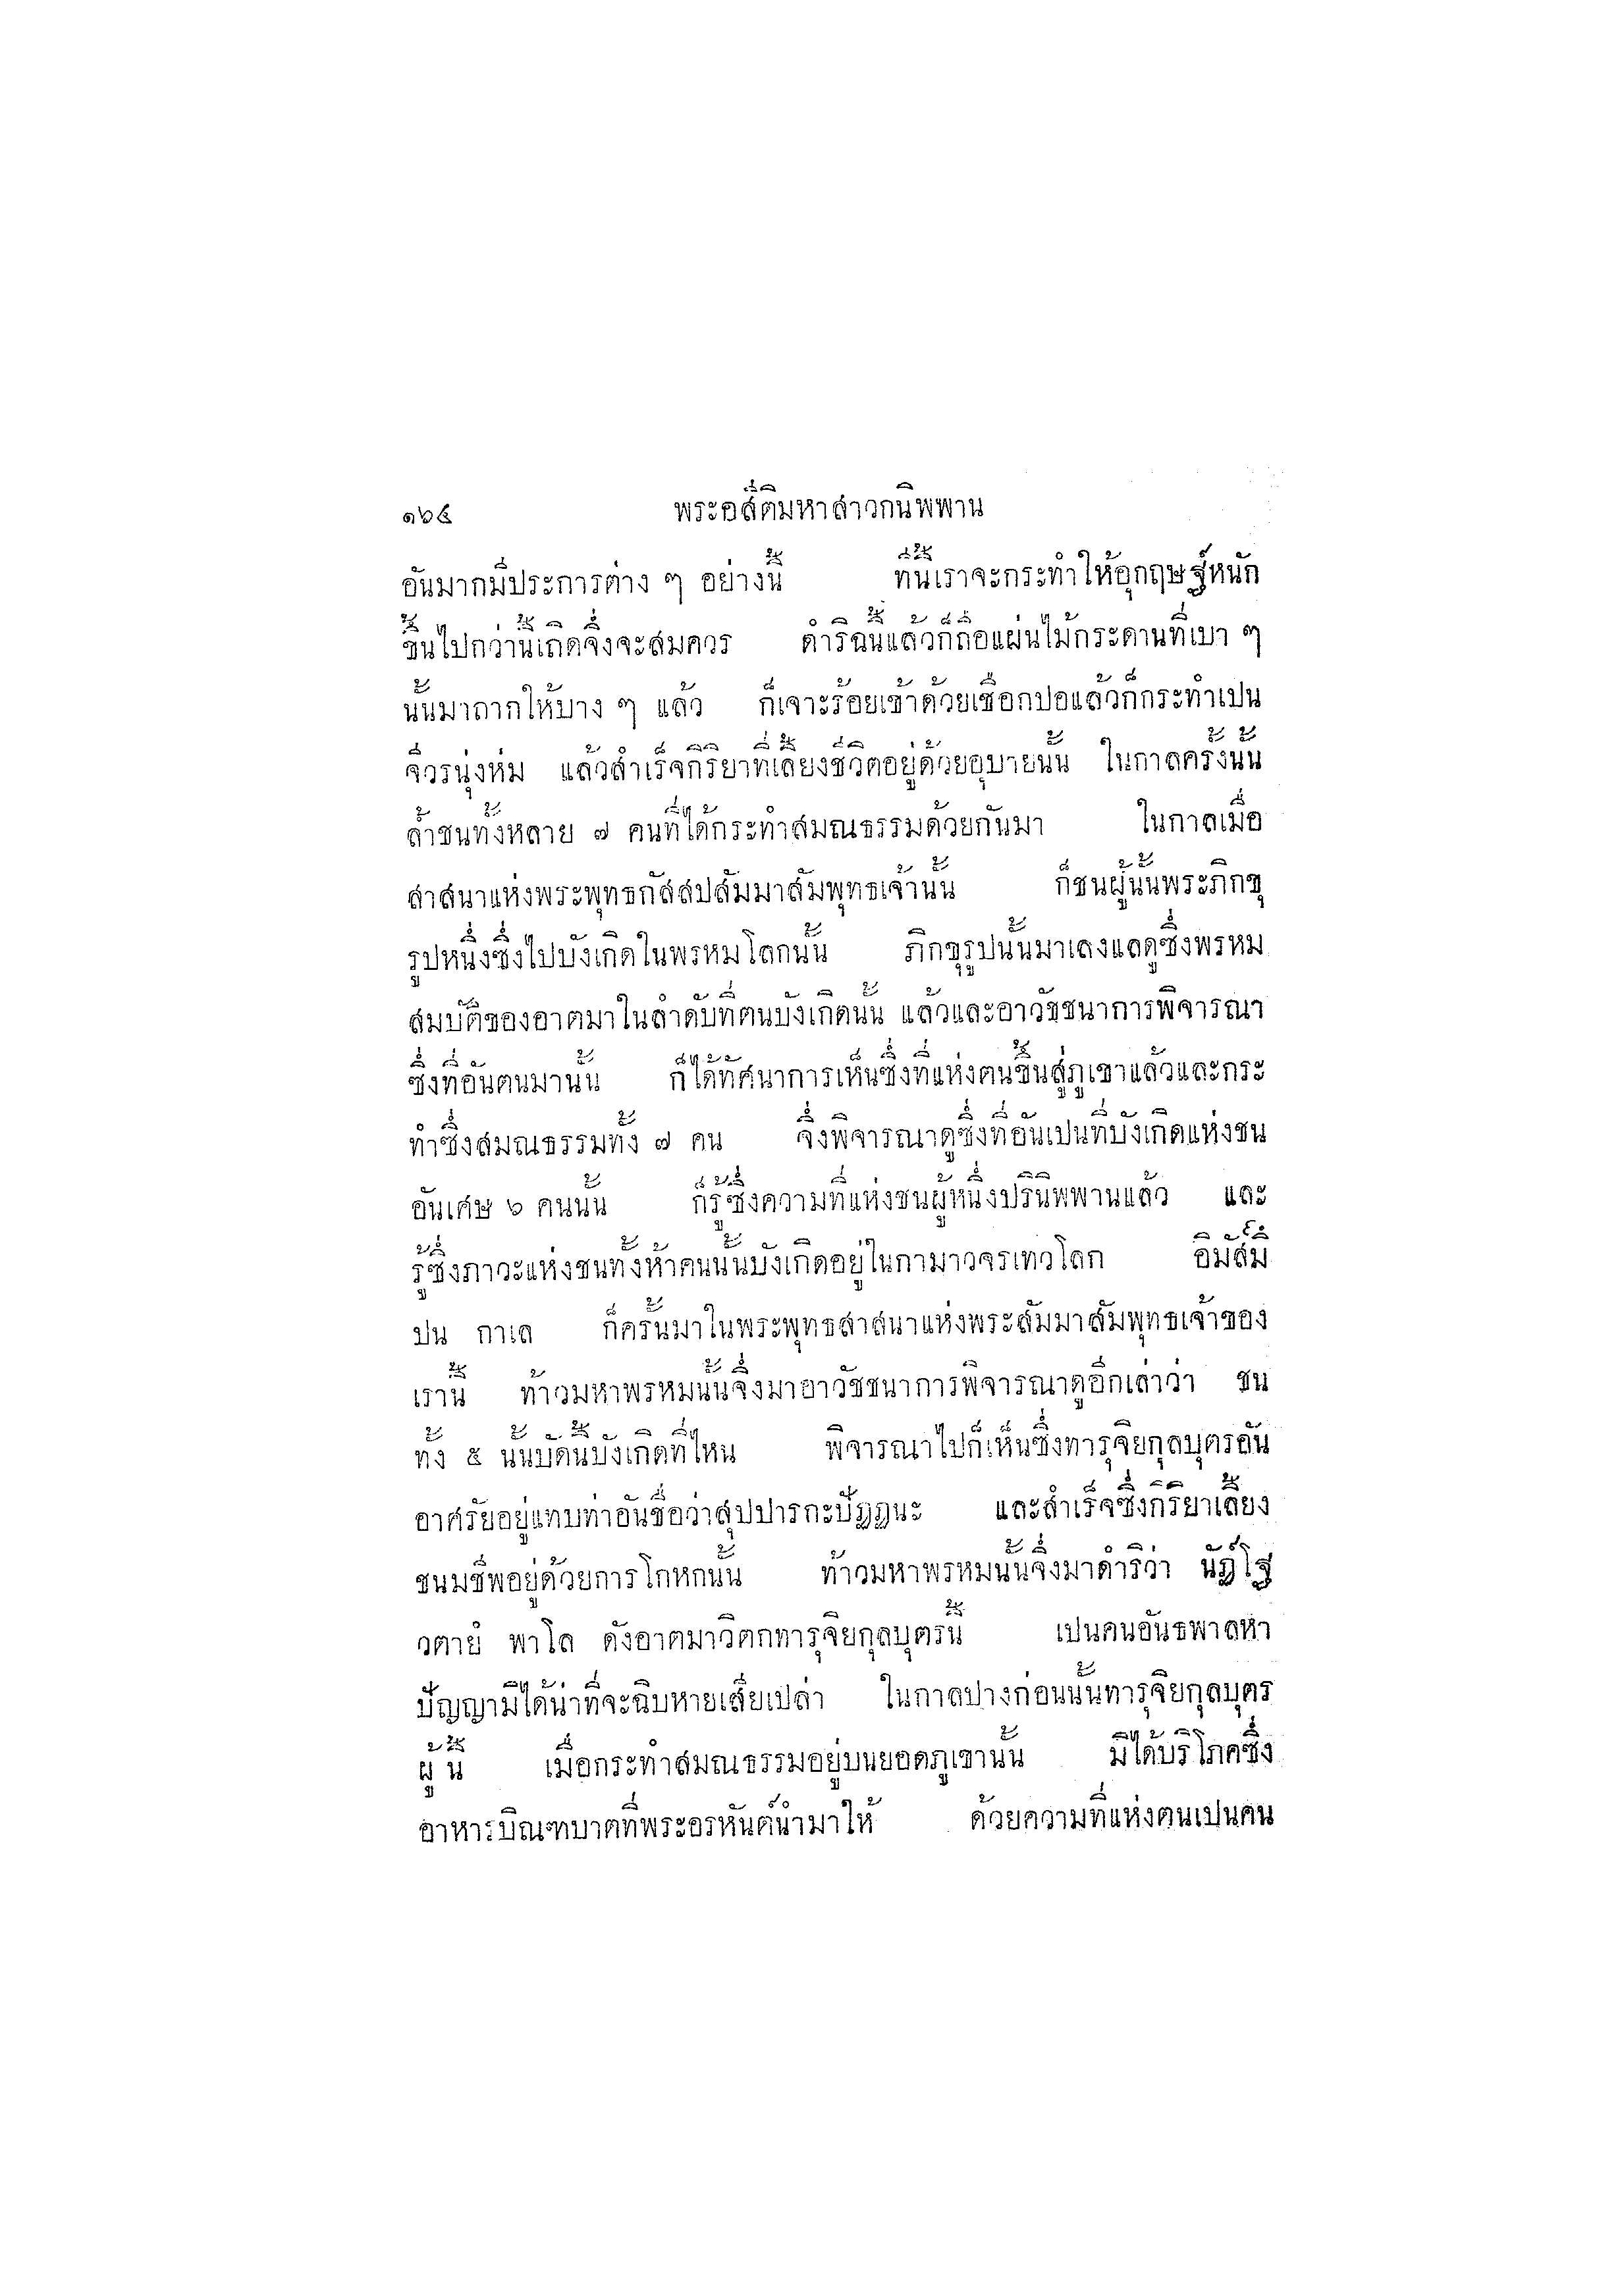 ๑๖๔ พระอสีติมหาสาวกนิพพาน
อันมากมีประการต่าง ๆ อย่างนี้ ทีนี้เราจะกระทำให้อุกฤษฐ์หนัก
ขึ้นไปกว่านี้เถิดจึ่งจะสมควร ดำริฉนี้แล้วก็ถือแผ่นไม้กระดานที่เบา ๆ
นั้นมาถากให้บาง ๆ แล้ว ก็เจาะร้อยเข้าด้วยเชือกปอแล้วก็กระทำเปน
จีวรนุ่งห่ม แล้วสำเร็จกิริยาที่เลี้ยงชีวิตอยู่ด้วยอุบายนั้น ในกาลครั้งนั้น
ล้ำชนทั้งหลาย ๗ คนที่ได้กระทำสมณธรรมด้วยกันมา ในกาลเมื่อ
สาสนาแห่งพระพุทธกัสสปสัมมาสัมพุทธเจ้านั้น ก็ชนผู้นั้นพระภิกขุ
รูปหนึ่งซึ่งไปบังเกิดในพรหมโลกนั้น ภิกขุรูปนั้นมาเลงแลดูซึ่งพรหม
สมบัติของอาตมาในลำดับที่ตนบังเกิดนั้น แล้วและอาวัชชนาการพิจารณา
ซึ่งที่อันตนมานั้น ก็ได้ทัศนาการเห็นซึ่งที่แห่งตนขึ้นสู่ภูเขาแล้วและกระ
ทำซึ่งสมณธรรมทั้ง ๗ คน จึ่งพิจารณาดูซึ่งที่อันเปนที่บังเกิดแห่งชน
อันเศษ ๖ คนนั้น ก็รู้ซึ่งความที่แห่งชนผู้หนึ่งปรินิพพานแล้ว และ
รู้ซึ่งภาวะแห่งชนทั้งห้าคนนั้นบังเกิดอยู่ในกามาวจรเทวโลก อิมัส๎มิํ
ปน กาเล ก็ครั้นมาในพระพุทธสาสนาแห่งพระสัมมาสัมพุทธเจ้าของ
เรานี้ ท้าวมหาพรหมนั้นจึ่งมาอาวัชชนาการพิจารณาดูอีกเล่าว่า ชน
ทั้ง ๕ นั้นบัดนี้บังเกิดที่ไหน พิจารณาไปก็เห็นซึ่งทารุจิยกุลบุตรอัน
อาศรัยอยู่แทบท่าอันชื่อว่าสุปปารกะปัฏฏนะ และสำเร็จซึ่งกิริยาเลี้ยง
ชนมชีพอยู่ด้วยการโกหกนั้น ท้าวมหาพรหมนั้นจึ่งมาดำริว่า นัฏ๎โฐ
วตายํ พาโล ดังอาตมาวิตกทารุจิยกุลบุตรนี้ เปนคนอันธพาลหา
ปัญญามิได้น่าที่จะฉิบหายเสียเปล่า ในกาลปางก่อนนั้นทารุจิยกุลบุตร
ผู้นี้ เมื่อกระทำสมณธรรมอยู่บนยอดภูเขานั้น มิได้บริโภคซึ่ง
อาหารบิณฑบาตที่พระอรหันต์นำมาให้ ด้วยความที่แห่งตนเปนคน